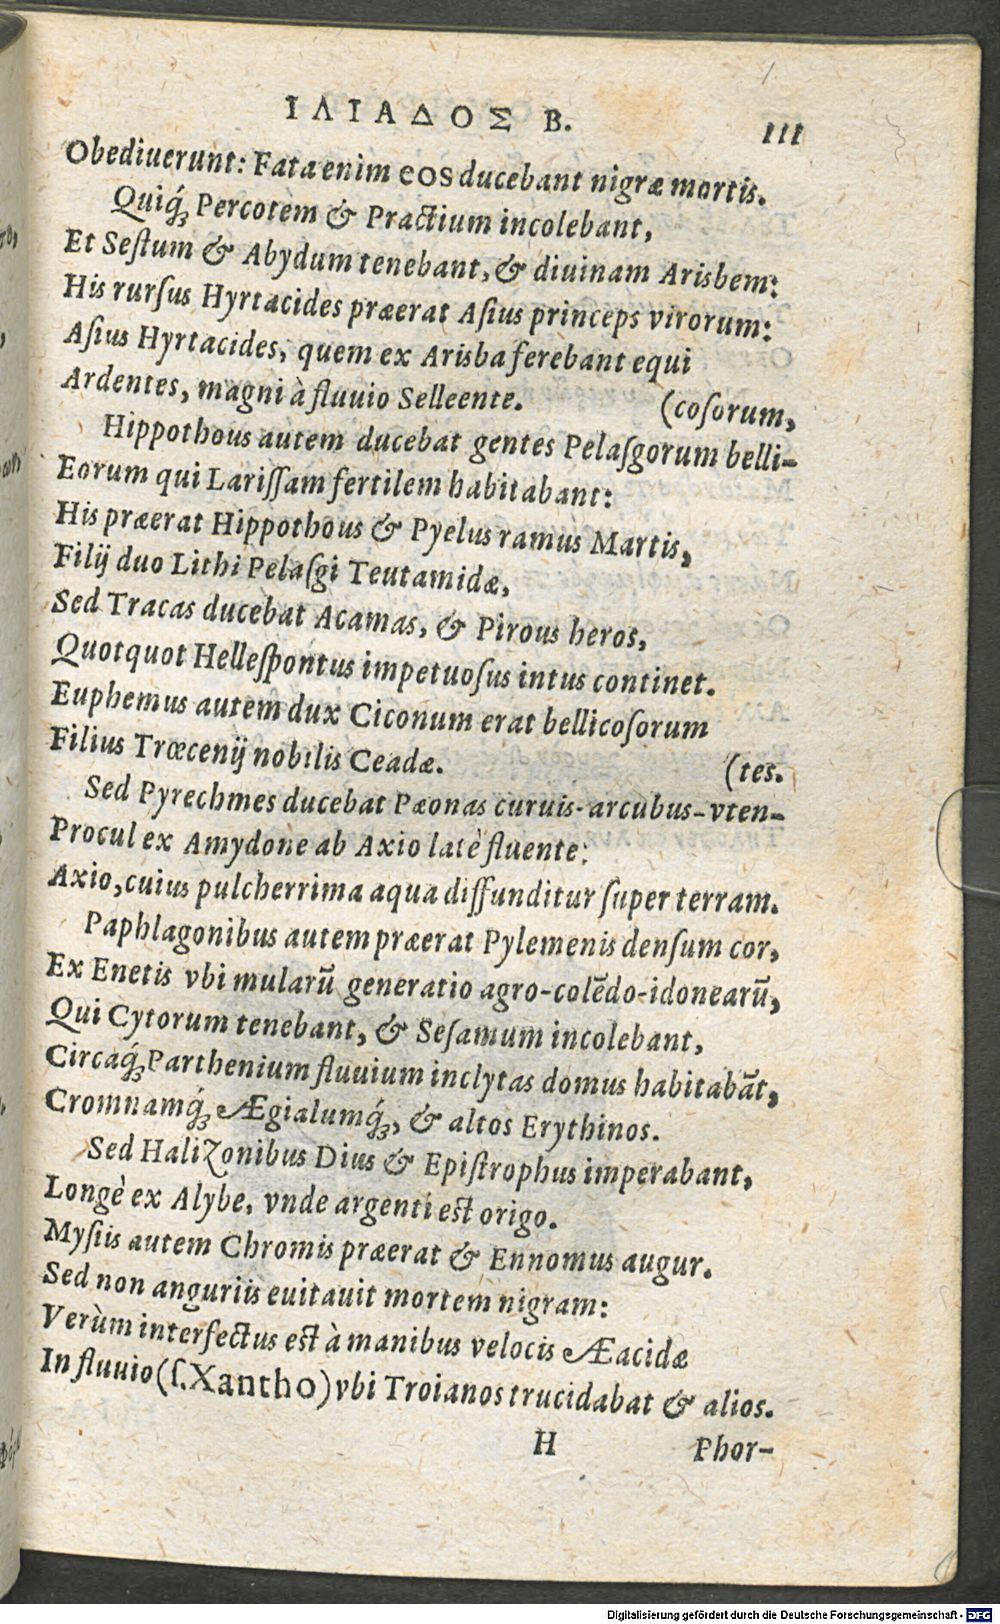 ΙΛΙΑΔΟΣ Β. 111
Obediuerunt: Fata enim eos ducebant nigræ mortis.
Quiq́ꝫ Percotem & Practium incolebant,
Et Seſtum & Abydum tenebant, & diuinam Arisbem:
His rurſus Hyrtacides præerat Aſius princeps virorum:
Aſius Hyrtacides, quem ex Arisba ferebant equi
Ardentes, magni à fluuio Selleente. (coſorum,
Hippothous autem ducebat gentes Pelaſgorum belli-
Eorum qui Lariſſam fertilem habitabant:
His præerat Hippothous & Pyelus ramus Martis,
Filij duo Lithi Pelaſgi Teutamidæ,
Sed Tracas ducebat Acamas, & Pirous heros,
Quotquot Helleſpontus impetuoſus intus continet.
Euphemus autem dux Ciconum erat bellicoſorum
Filius Trœcenij nobilis Ceadæ. (tes.
Sed Pyrechmes ducebat Pæonas curuis-arcubus-vten-
Procul ex Amydone ab Axio latè fluente:
Axio, cuius pulcherrima aqua diffunditur ſuper terram.
Paphlagonibus autem præerat Pylemenis denſum cor,
Ex Enetis vbi mularũ generatio agro-colẽdo-idonearũ,
Qui Cytorum tenebant, & Seſamum incolebant,
Circaq́ꝫ Parthenium fluuium inclytas domus habitabãt,
Cromnamq́ꝫ Ægialumq́ꝫ, & altos Erythinos.
Sed Halizonibus Dius & Epiſtrophus imperabant,
Longè ex Alybe, vnde argenti eſt origo.
Myſiis autem Chromis præerat & Ennomus augur.
Sed non anguriis euitauit mortem nigram:
Verùm interfectus eſt à manibus velocis Æacidæ
In fluuio (ſ. Xantho) vbi Troianos trucidabat & alios.
H Phor-
Digitalisierung gefördert durch die Deutsche Forschungsgemeinschaft - DFG